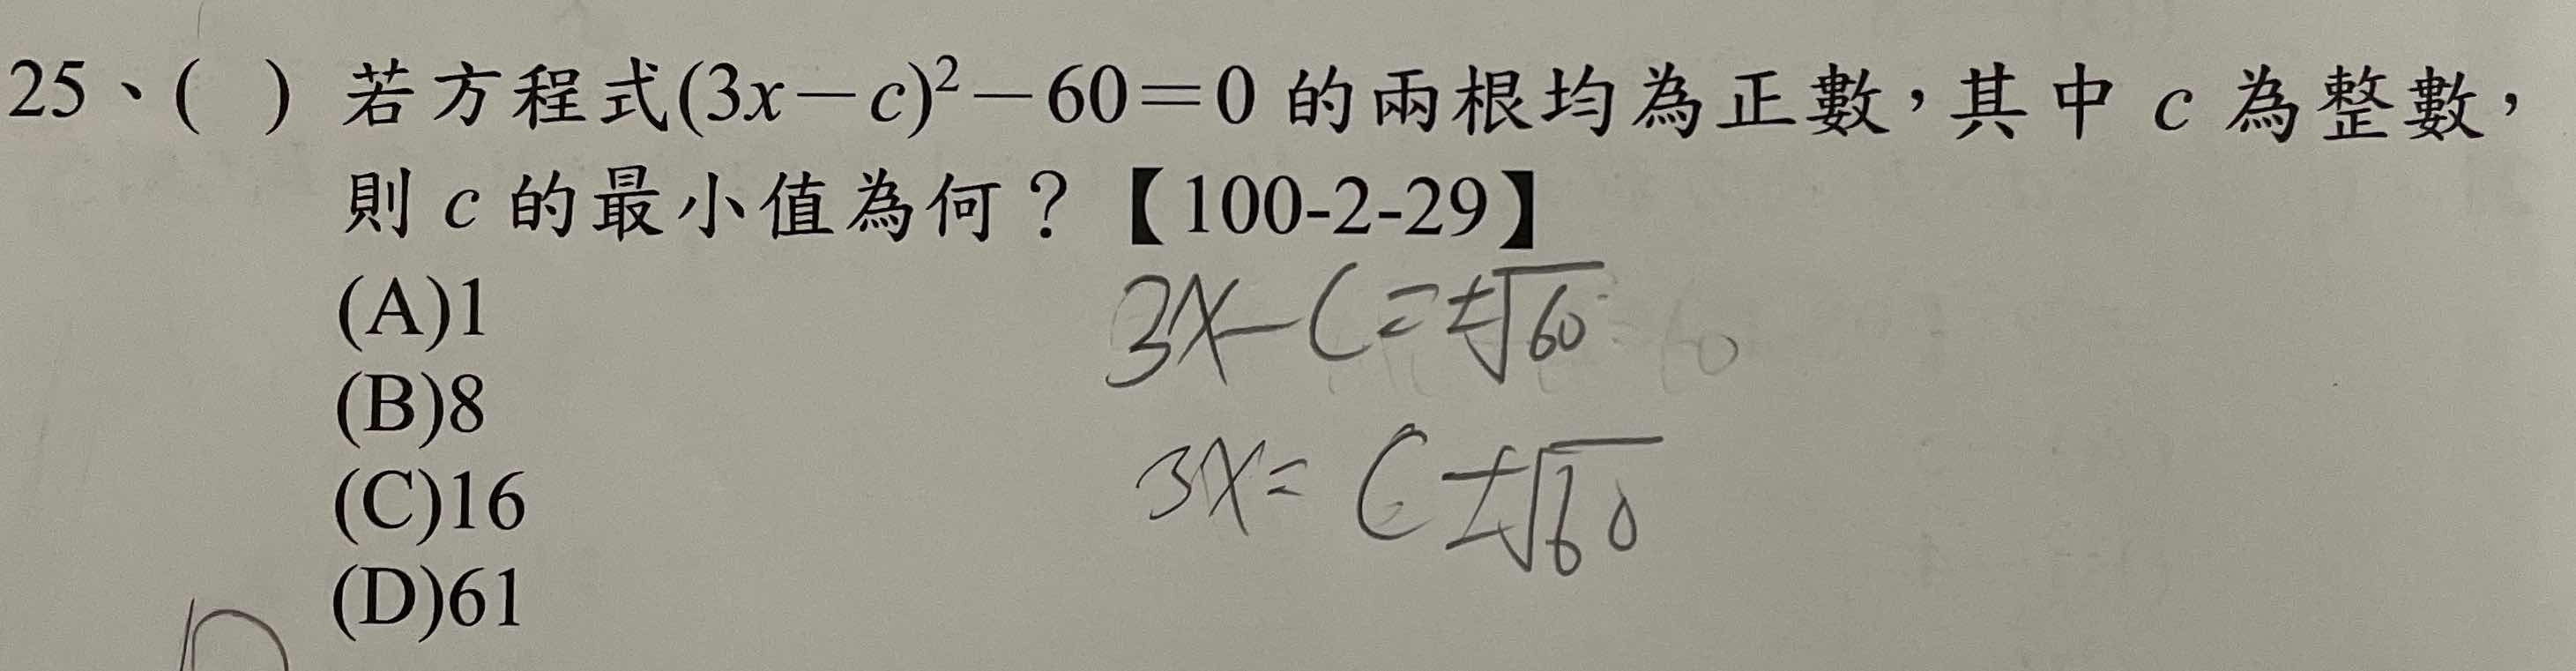 25、(  ) 若方程式(3x－c)²－60＝0 的兩根均為正數，其中 c 為整數，
則 c 的最小值為何？【100-2-29】
(A)1
(B)8
(C)16
(D)61
3x－c=±√60
3x= c±√60